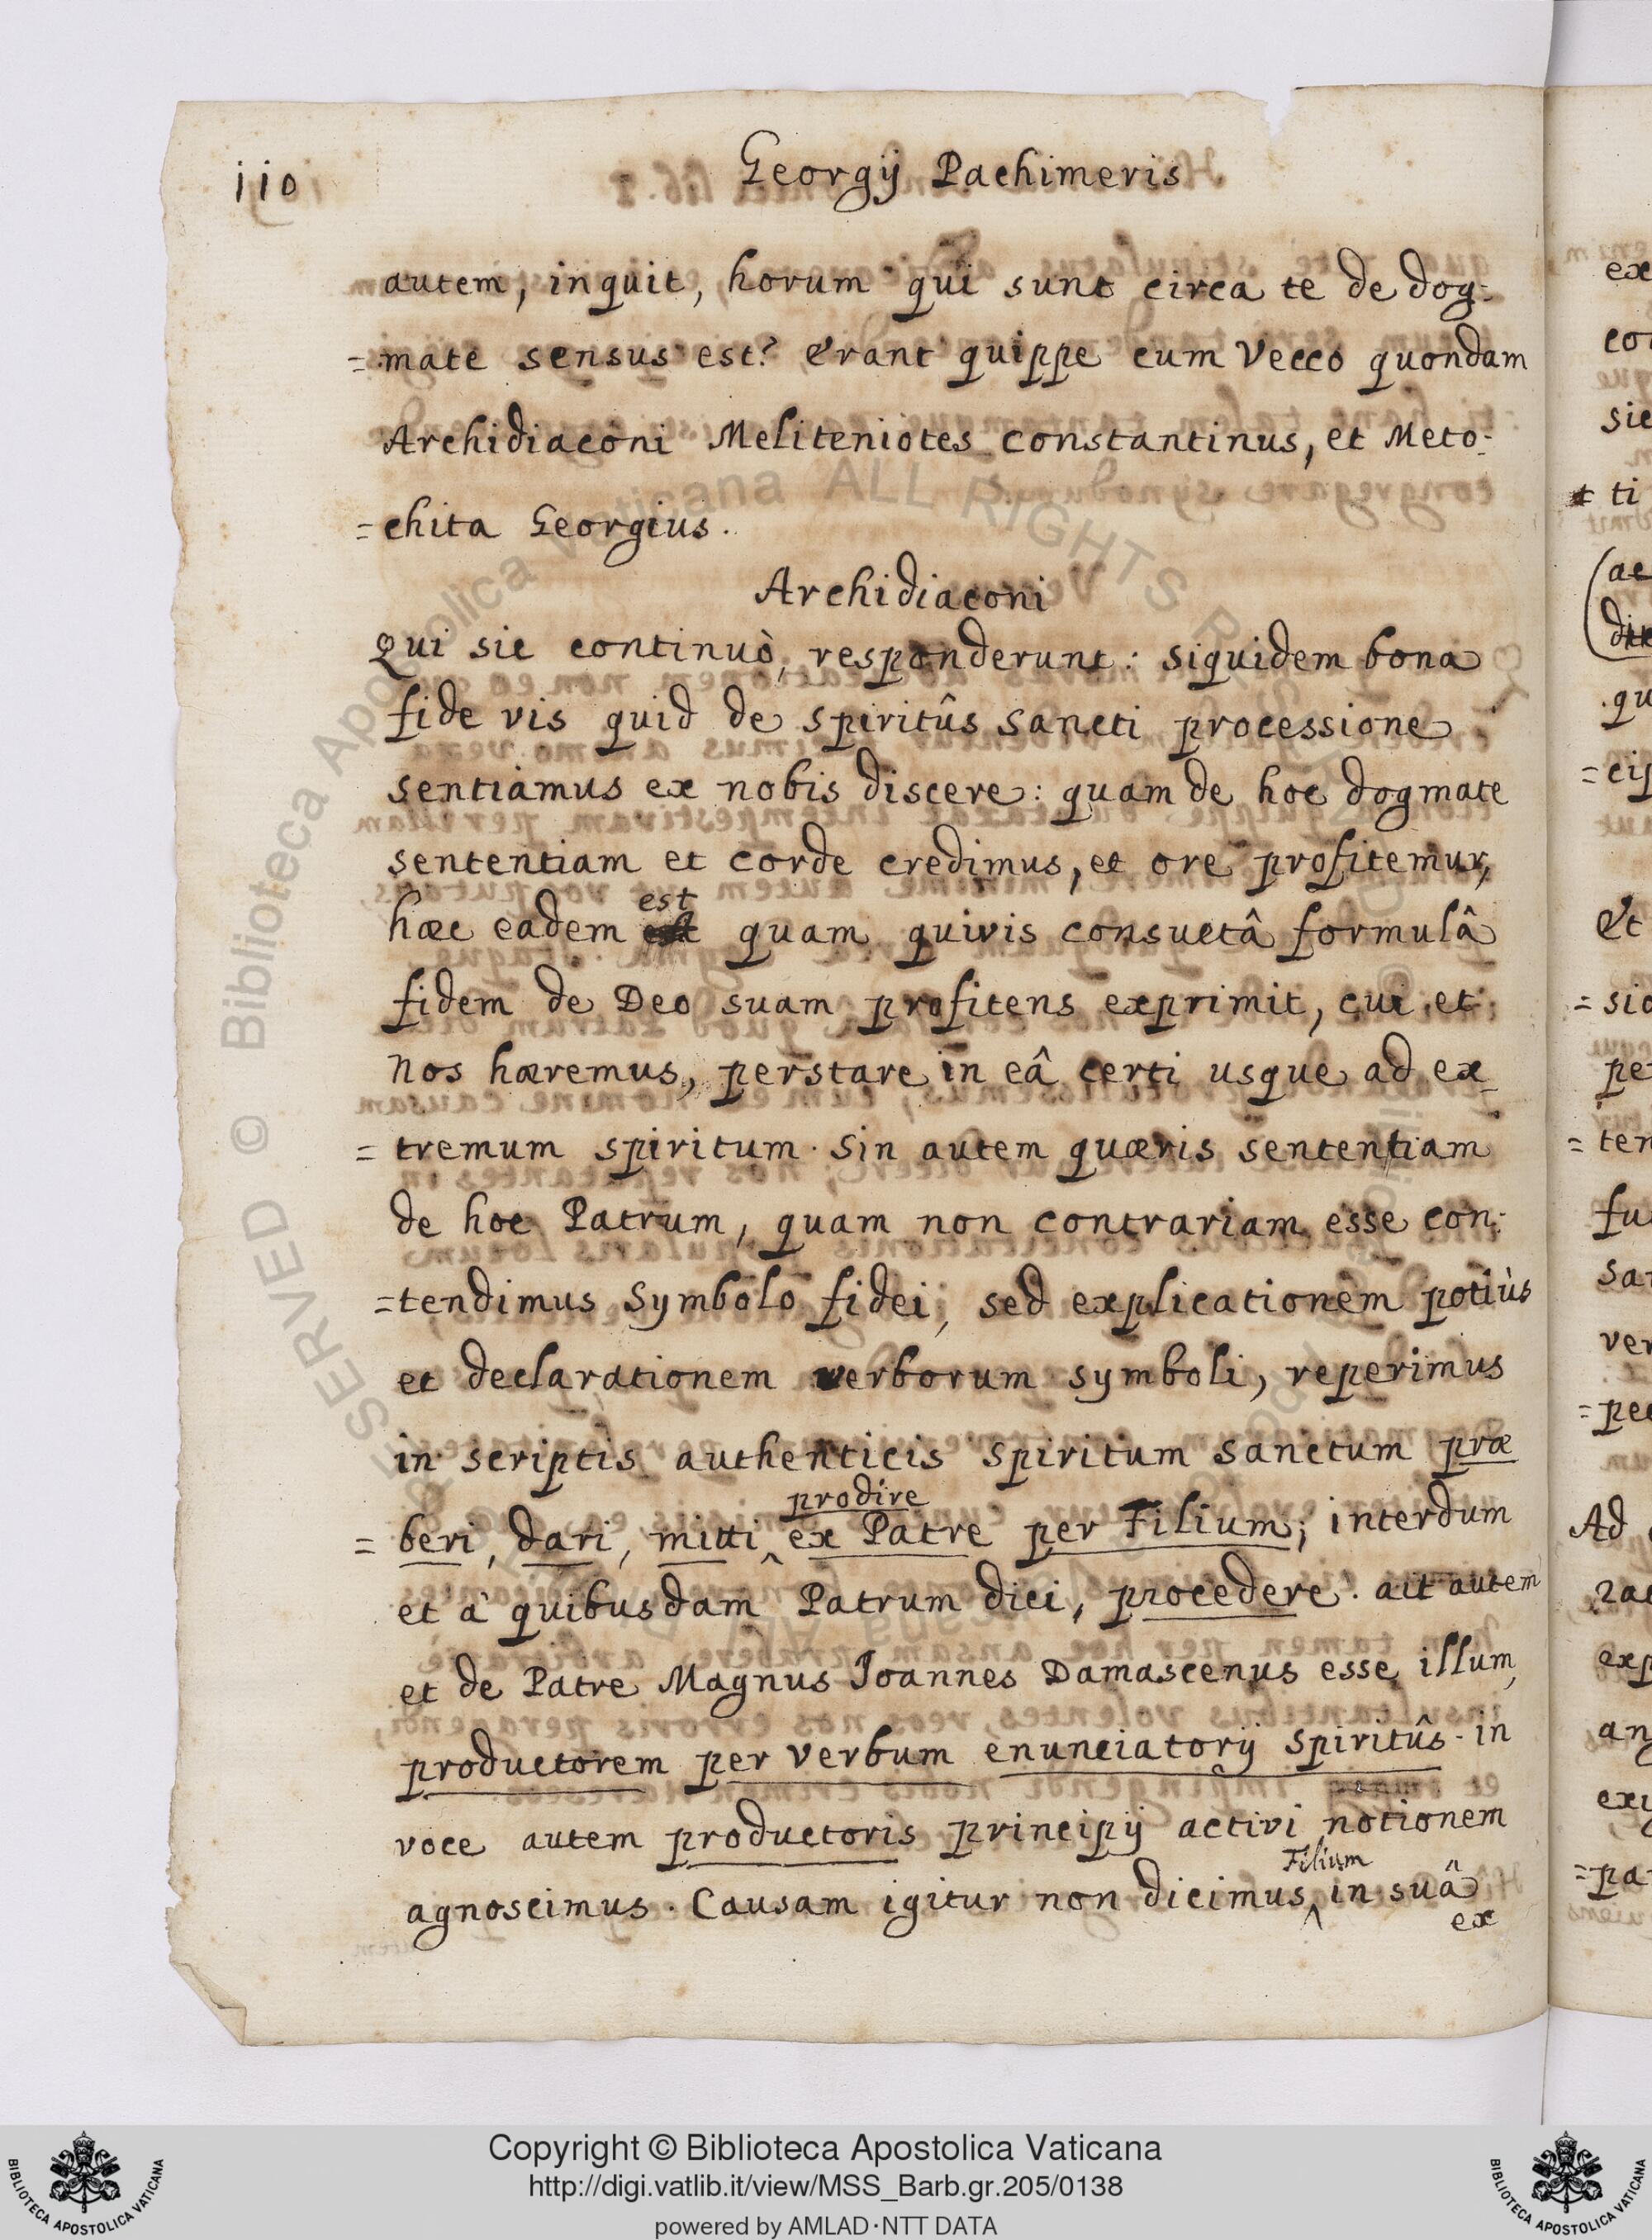 110
Georgij Pachimeris
autem, inquit, horum qui sunt circa te de dog-
=mate sensus est? Erant quippe cum Vecco quondam
Archidiaconi Meliteniotes constantinus, et Meto-
=chita Georgius.
Archidiaconi
Qui sic continuò, responderunt: siquidem bona
fide vis quid de spiritûs sancti processione
sentiamus ex nobis discere: quam de hoc dogmate
sententiam et corde credimus, et ore profitemur,
est
hæc eadem quam quivis consuetâ formulâ
fidem de Deo suam profitens exprimit, cui et
nos hæremus, perstare in eâ certi usque ad ex-
=tremum spiritum. Sin autem quæris sententiam
de hoc Patrum, quam non contrariam esse con-
=tendimus Symbolo fidei, sed explicationem potiùs
et declarationem verborum symboli, reperimus
in scriptis authenticis spiritum sanctum præ
prodire
=beri, dari, mitti ^ ex Patre per Filium; interdum
et à quibusdam Patrum dici, procedere. ait autem
et de Patre Magnus Joannes Damascenus esse illum,
productorem per verbum enunciatorij Spiritûs. in
voce autem productoris principij activi notionem
Filium
agnoscimus. Causam igitur non dicimus ^ in suâ
ex
ex
sie
ti
qu
Et
=sio
=ten
ver
Ad
exp
Copyright © Biblioteca Apostolica Vaticana
http://digi.vatlib.it/view/MSS_Barb.gr.205/0138
powered by AMLAD·NTT DATA
BIBLIOTECA APOSTOLICA VATICANA
BIBLIOTECA APOSTOLICA VATICANA
© Biblioteca Apostolica Vaticana ALL RIGHTS RESERVED